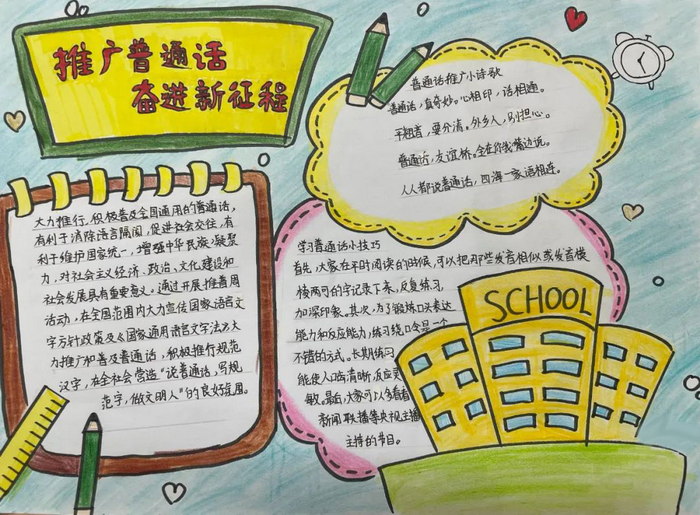 推广普通话
奋进新征程
大力推行、积极普及全国通用的普通话，
有利于消除语言隔阂，促进社会交往，有
利于维护国家统一，增强中华民族凝聚
力，对社会主义经济、政治、文化建设和
社会发展具有重要意义。通过开展推普周
活动，在全国范围内大力宣传国家语言文
字方针政策及《国家通用语言文字法》大
力推广和普及普通话，积极推行规范
汉字，在全社会营造“说普通话，写规
范字，做文明人”的良好氛围。
普通话推广小诗歌
普通话，真奇妙。心相印，话相通。
平翘音，要分清。外乡人，别担心。
普通话，友谊桥。全在你我嘴边说。
人人都说普通话，四海一家语相连。
学习普通话小技巧
首先，大家在平时阅读的时候，可以把那些发音相似或发音模
棱两可的字记录下来，反复练习，
加深印象。其次，为了锻炼口头表达
能力和反应能力，练习绕口令是一个
不错的方式。长期练习
能使人口齿清晰，反应灵
敏。最后，大家可以多看看
新闻联播等央视主播
主持的节目。
SCHOOL